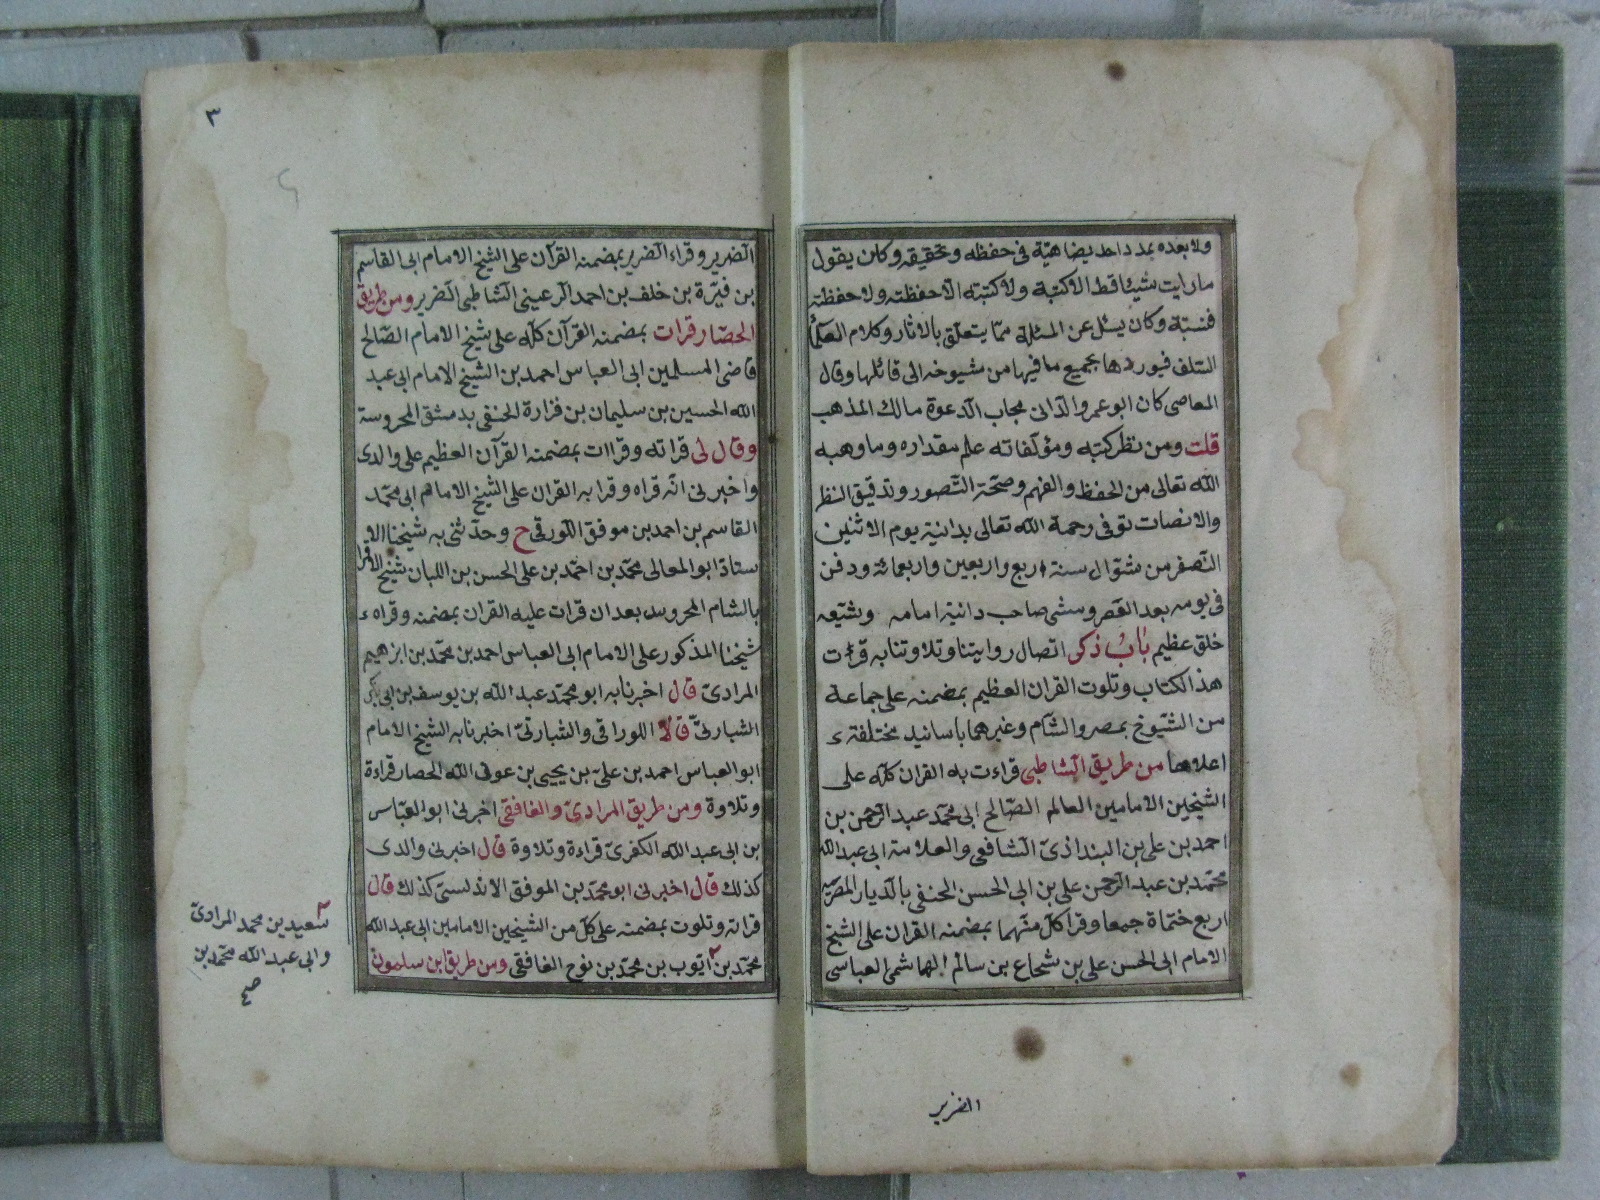 ولا بعده بمدد احد يضاهيه فى حفظه وتحقيقه وكان يقول
ما رايت شيئا قط الا كتبته ولا كتبته الا حفظته ولا حفظته
فنسيته وكان يسئل عن المسئلة مما يتعلق بالاثار وكلام العلماء
السلف فيوردها بجميع ما فيها من شيوخه الى قائلها وقال
المعاصى كان ابو عمرو الدانى مجاب الدعوة مالك المذهب
قلت ومن نظر كتبه ومؤلفاته علم مقداره وما وهبه
الله تعالى من الحفظ والفهم وصحة التصور وتدقيق النظر
والانصات توفى رحمة الله تعالى بدانية يوم الاثنين
النصف من شوال سنة اربع واربعين واربعمائة ودفن
فى يومه بعد العصر ومشى صاحب دانية امامه وشيعه
خلق عظيم باب ذكر اتصال روايتنا وتلاوتنا به قرات
هذا الكتاب وتلوت القران العظيم بمضمنه على جماعة
من الشيوخ بمصر والشام وغيرهما باسانيد مختلفة
اعلاها من طريق الشاطبى قراءت به القران كله على
الشيخين الامامين العالم الصالح ابى محمد عبد الرحمن بن
احمد بن على بن البغدادى الشافعى والعلامة ابى عبد الله
محمد بن عبد الرحمن على بن ابى الحسن الحنفى بالديار المصرية
اربع ختماة جمعا وقرا كل منهما بمضمنه القران على الشيخ
الامام ابى الحسن على بن شجاع بن سالم الهاشمى العباسى
الضرير
٣
الضرير وقراء الضرير بمضمنه القرآن على الشيخ الامام ابى القاسم
بن فيرة بن خلف بن احمد الرعينى الشاطبى الضرير ومن طريق
الحصار قرات بمضمنه القرآن كله على شيخ الامام الصالح
قاضى المسلمين ابى العباس احمد بن الشيخ الامام ابى عبد
الله الحسين بن سليمان بن فزارة الحنفى بدمشق المحروسة
وقال لى قراته وقراات بمضمنه القرآن العظيم على والدى
واخبرنى انه قراه وقرا به القران على الشيخ الامام ابى محمد
القاسم بن احمد بن موفق اللورقى ح وحدثنى به شيخنا الا
ستاذ ابو المعالى محمد بن احمد بن على الحسن بن اللبان شيخ الاقرا
بالشام المحروس بعد ان قرات عليه القران بمضمنه وقراه
شيخنا المذكور على الامام ابى العباس احمد بن محمد بن ابرهيم
المرادى قال اخبرنا به ابو محمد عبد الله بن يوسف بن ابى بكر
الشبارتى قالا اللوراقى والشبارتى اخبرنا به الشيخ الامام
ابو العباس احمد بن على بن يحيى بن عون الله الحصار قراءة
وتلاوة ومن طريق المرادى والغافقى اخبرنى ابو العباس
بن ابى عبد الله الكفرى قراءة وتلاوة قال اخبرنى والدى
كذلك قال اخبرنى ابو محمد بن الموفق الاندلسى كذلك قال
قراته وتلوت بمضمنه على كل من الشيخين الامامين ابى عبد الله
محمد بن ايوب بن محمد بن نوح الغافقى ومن طريق ابن سلمون
سعيد بن محمد المرادى
وابى عبد الله محمد بن
صح